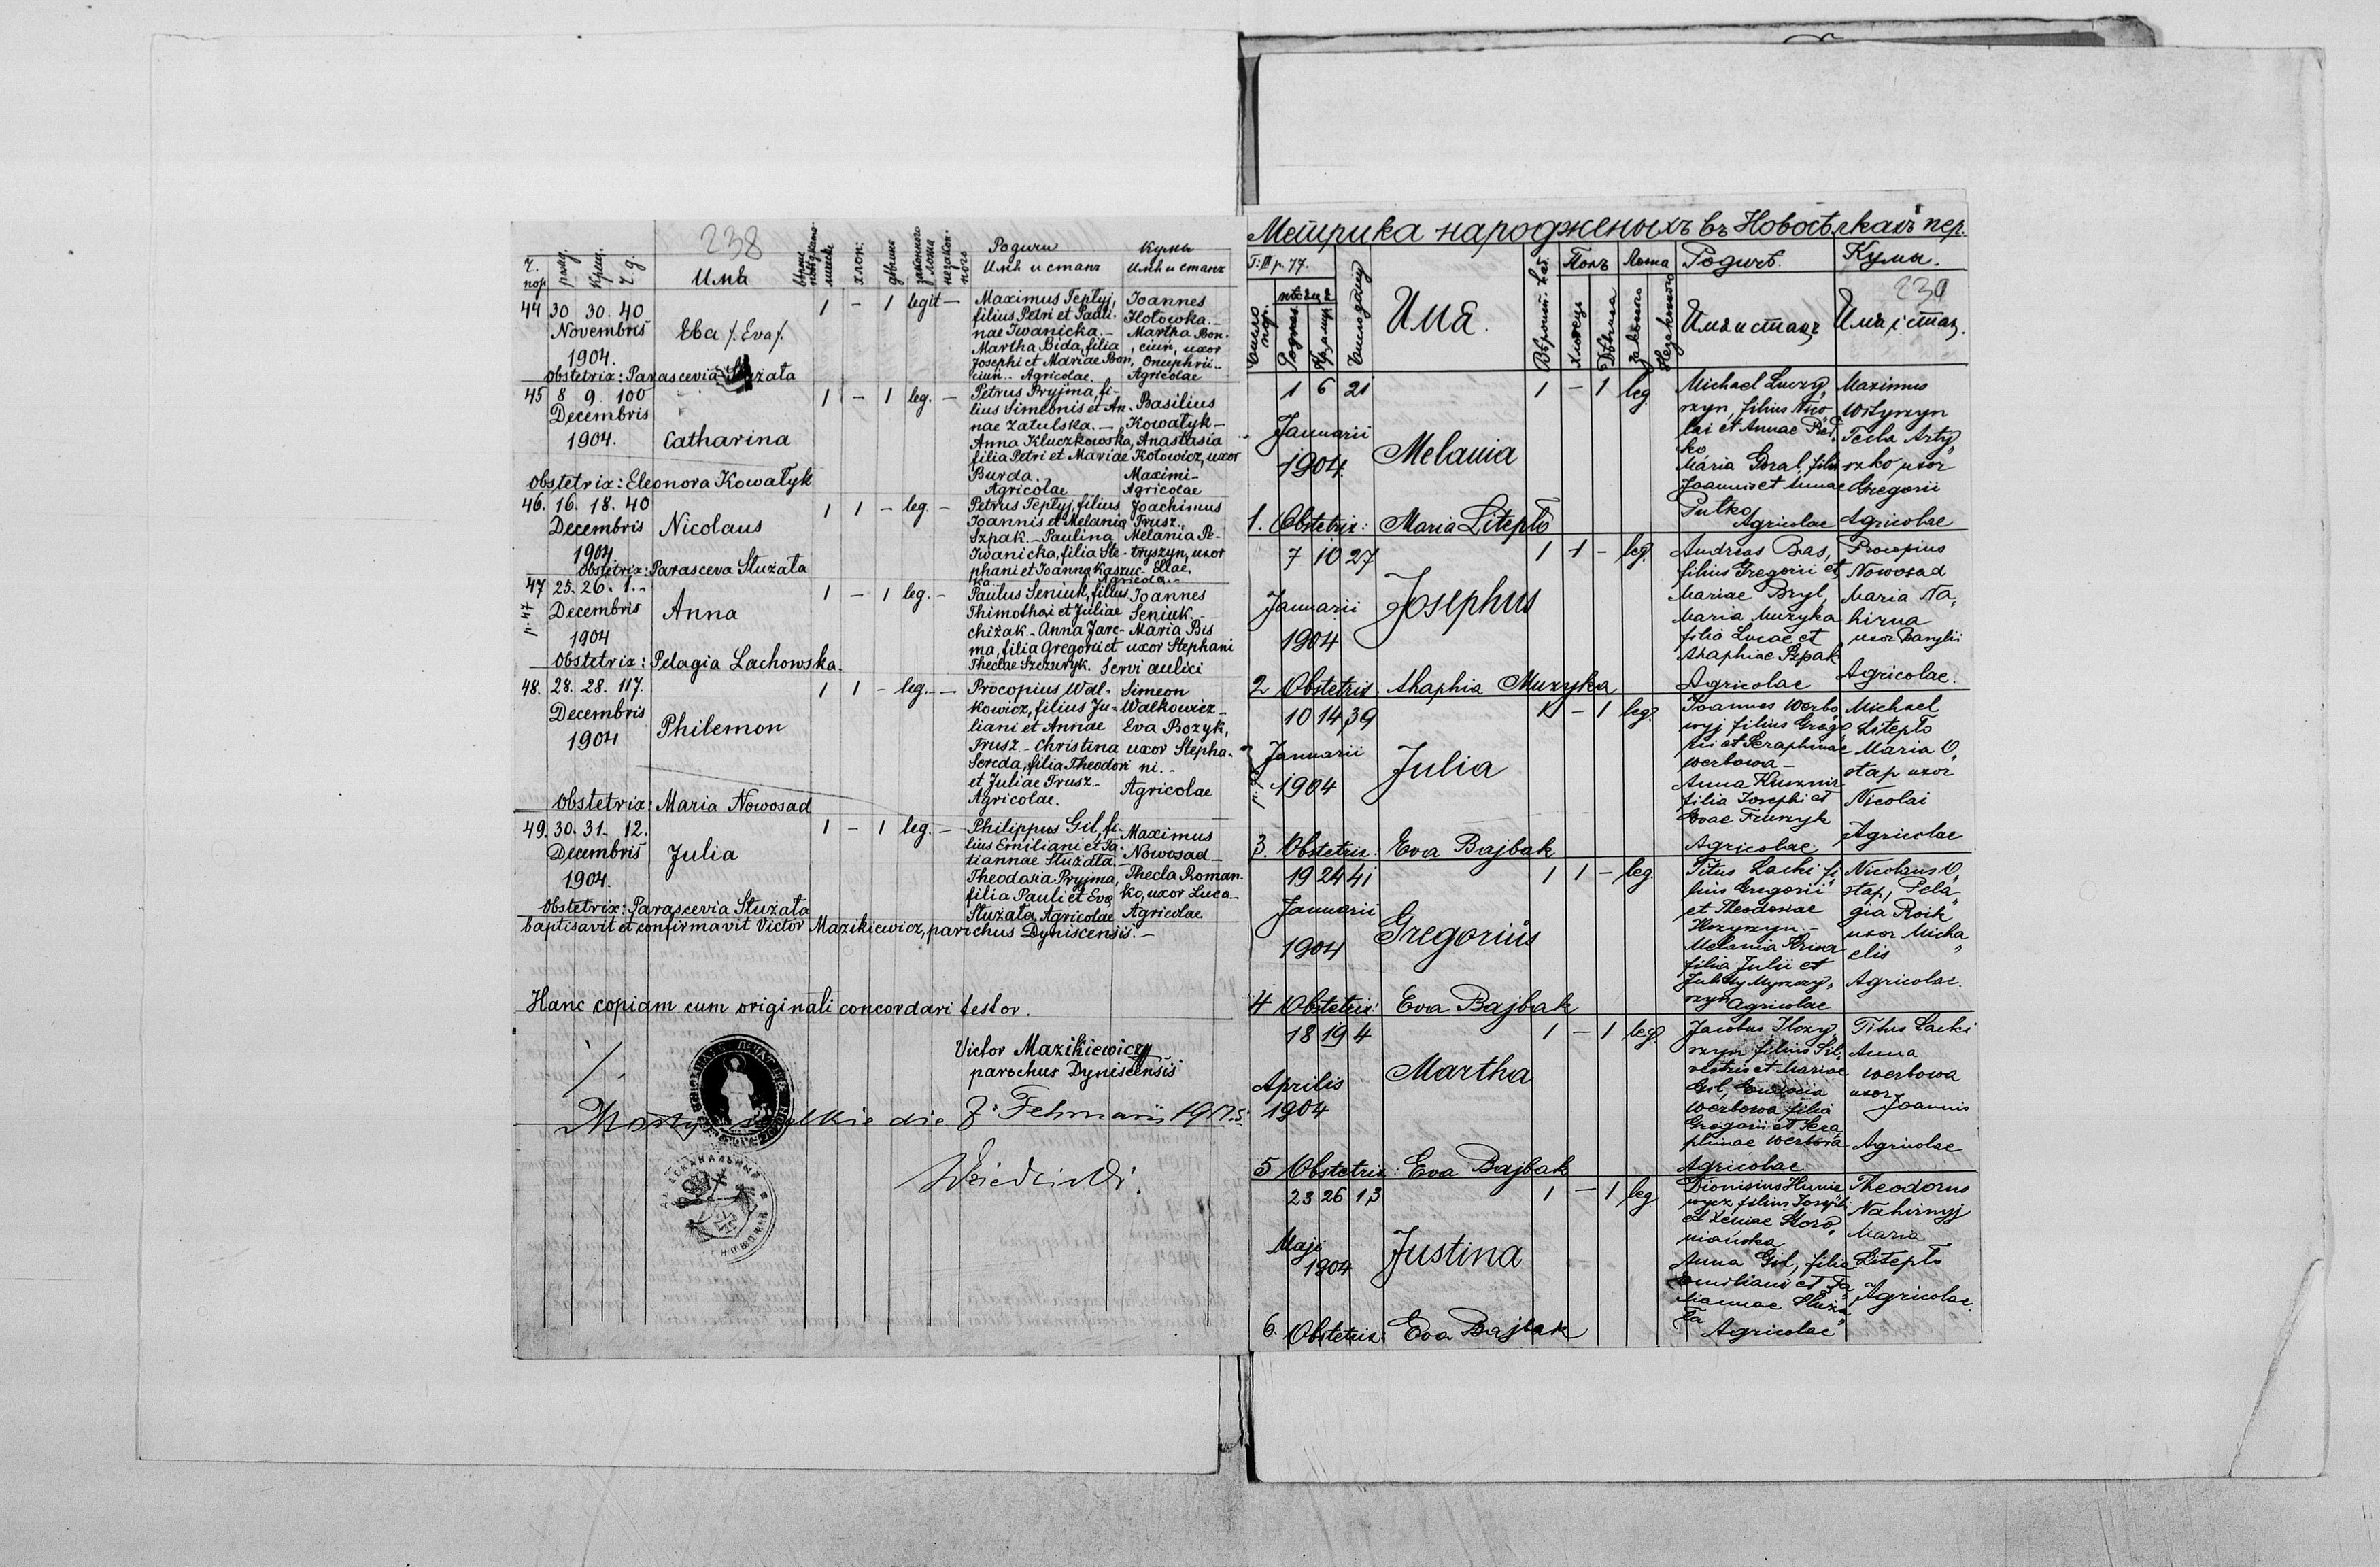 238
Ч. пор.
рожд.
Крещ.
Ч. д.
Имѧ
хлоп:
дѣвице
законного ложа
незакон-ного
Родичи
Имѧ и станъ
Кумы
Имѧ и станъ
44 30 30. 40
Novembris
1904.
Ева /. Eva /.
1 - 1 legit -
Maximus Teptyj,
filius Petri et Pauli-
nae Iwanicka. -
Martha Bida, filia
Josephi et Mariae Bon,
ciuń.. Agricolae.
Joannes
Hołowka. -
Martha Bon-
ciuń, uxor
Onuphrii..
Agricolae
Obstetrix: Parascevia Służała
45 8 9. 100
Decembris
1904.
Catharina
1 - 1 leg. -
Petrus Pryjma, fi-
lius Simeonis et An-
nae Zatulska. -
Anna Kluczkowska,
filia Petri et Mariae
Burda.
Agricolae
Basilius
Kowałyk -
Anastasia
Kotowicz, uxor
Maximi-
Agricolae
Obstetrix: Eleonora Kowałyk
46. 16. 18. 40
Decembris
1904
Nicolaus
1 1 - leg. -
Petrus Teptyj, filius
Joannis et Melania
Szpak. - Paulina
Iwanicka, filia Ste-
phani et Joanna Kaszuc-
ka
Joachimus
Trusz.
Melania Pe-
tryszyn, uxor
Eliae,
Agricola.-
Obstetrix: Parasceva Służała
47 25. 26. 1.-
p. 47
Decembris
1904
Anna
1 - 1 leg. -
Paulus Seniuk, filius
Thimothei et Juliae
chiżak. - Anna Jare-
ma, filia Gregorii et
Theclae Szczuryk.
Joannes
Seniuk. -
Maria Bis
uxor Stephani
Servi aulici
Obstetrix: Pelagia Lachowska.
48. 28. 28. 117.
Decembris
1904
Philemon
1 1 - leg. -
Procopius Wal-
kowicz, filius Ju-
liani et Annae
Trusz - Christina
Sereda, filia Theodori
et Juliae Trusz -
Agricolae.
Simeon
Walkowicz -
Eva Bozyk,
uxor Stepha-
ni. -
Agricolae
Obstetrix: Maria Nowosad
49. 30. 31. 12.
Decembris
1904.
Julia
1 - 1 leg. -
Philippus Gil, fi-
lius Emiliani et Ta-
tiannae Służała. -
Theodosia Pryjma,
filia Pauli et Eva
Służała, Agricolae
Maximus
Nowosad -
Thecla Roman-
ko, uxor Luca -
Agricolae.
Obstetrix: Parascevia Służała
baptisavit et confirmavit Victor Mazikiewicz, parochus Dyniscensis. -
Hanc copiam cum originali concordari testor.
Victor Mazikiewicz
parochus Dyniscensis
die 7
Метрика народженыхъ въ Новосѣлкахъ пер.
T: III p. 77.
239
Число пор.
мѣсяца
Имя.
Полъ
Хлопець
Дѣвица
Ложа
Родичѣ.
Имя и станъ
Кумы.
Имя і стан.
1 6 21
Januarii
1904.
Melania
1 - 1 leg
Michael Luczy,
szyn, filius Nico
lai et Annae Red,
ko
Maria Goral, filia
Joannis et Annae
Putko
Agricolae
Maximus
Wołyszyn
Tecla Arty,
szko uxor
Gregorii
Agricolae
1. Obstetrix: Maria Litepło
7 10 27
Januarii
1904
Josephus
1 1 - leg.
Andreas Bas,
filius Gregorii et
Mariae Bryl,
Maria Muzyka
filia Lucae et
Ahaphiae Szpak
Agricolae
Procopius
Nowosad
Maria Na,
hirna
uxor Basylii
Agricolae.
2 Obstetrix: Ahaphia Muzyka
10 14 39
Januarii
1904
Julia
1 - 1 leg.
Joannes Werbo
wyj filius Grego
rii et Seraphinae
Werbowa -
Anna Kusznir
filia Josephi et
Evae
Agricolae
Michael
Litepło
Maria O,
stap uxor
Nicolai
Agricolae
3. Obstetrix: Eva Bajbak
19 24 41
Januarii
1904
Gregorius
1 1 - leg
Titus Lacki fi,
lius Gregorii
et Theodosiae
Melania
filia Julii et
Agricolae
Nicolaus O,
stap, Pela
gia Roik
uxor Micha
elis
Agricolae.
4 Obstetrix: Eva Bajbak
18 19 4
Aprilis
1904
Martha
1 - 1 leg.
Jacobus
szyn filius Sil,
vestris et Mariae
Gil, Eudokia
Werbowa filia
Gregorii et Sera
phinae Werbowa
Agricolae
Titus Lacki
Anna
Werbowa
uxor
Joannis
Agricolae
5 Obstetrix: Eva Bajbak
23 26 13
Maji
1904
Justina
1 - 1 leg.
Dionisius Hunie
wycz, filius Josephi
et Xeniae Storo,
niańska
Anna Gil, filia
Emiliani et Ta,
tiannae Służa
ła
Agricolae
Theodorus
Nahirnyj
Maria
Litepło
Agricolae.
6. Obstetrix: Eva Bajbak